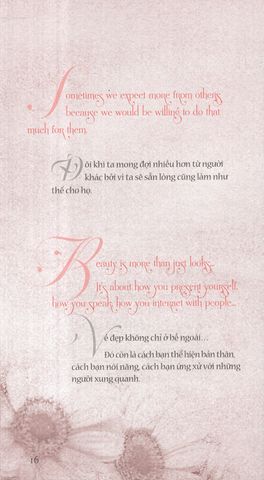 Sometimes we expect more from others
because we would be willing to do that
much for them.
Đôi khi ta mong đợi nhiều hơn từ người
khác bởi vì ta sẽ sẵn lòng cũng làm như
thế cho họ.
Beauty is more than just looks...
It's about how you present yourself,
how you speak, how you interact with people...
Vẻ đẹp không chỉ ở bề ngoài...
Đó còn là cách bạn thể hiện bản thân,
cách bạn nói năng, cách bạn ứng xử với những
người xung quanh.
16